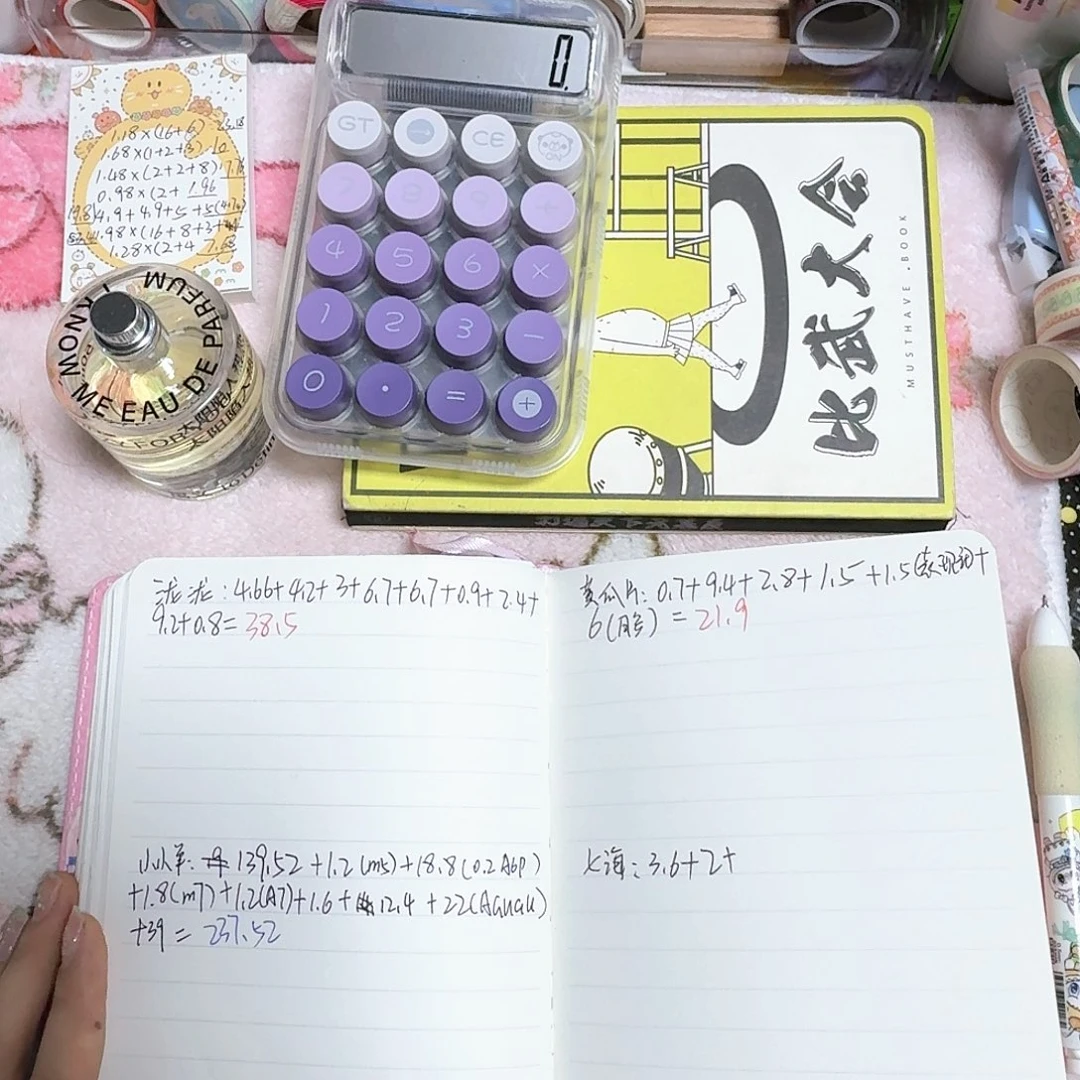 0.
GT → CE ON
7 8 9 ÷
4 5 6 ×
1 2 3 −
0 · = +
1.18×(16+6
1.68×(1+2+3
1.48×(2+2+8)
0.98×(2+ 1.96
4.9+4.9+5
1.98×(16+8+3+
1.28×(2+4 7.68
I KNOW ME EAU DE PARFEUM
比武大会
MUSTHAVE . BOOK
泷泷：4.66+4.2+3+6.7+6.7+0.9+2.4+
9.2+0.8= 38.5
小小羊： 139.52 +1.2(m5)+18.8(0.2 A6P)
+1.8(m7)+1.2(A7)+1.6+ 12.4 +22(Aguau)
+39 = 237.52
黄瓜片：0.7+9.4+2.8+1.5 +1.5 +
6( ) = 21.9
大海：3.6+2+